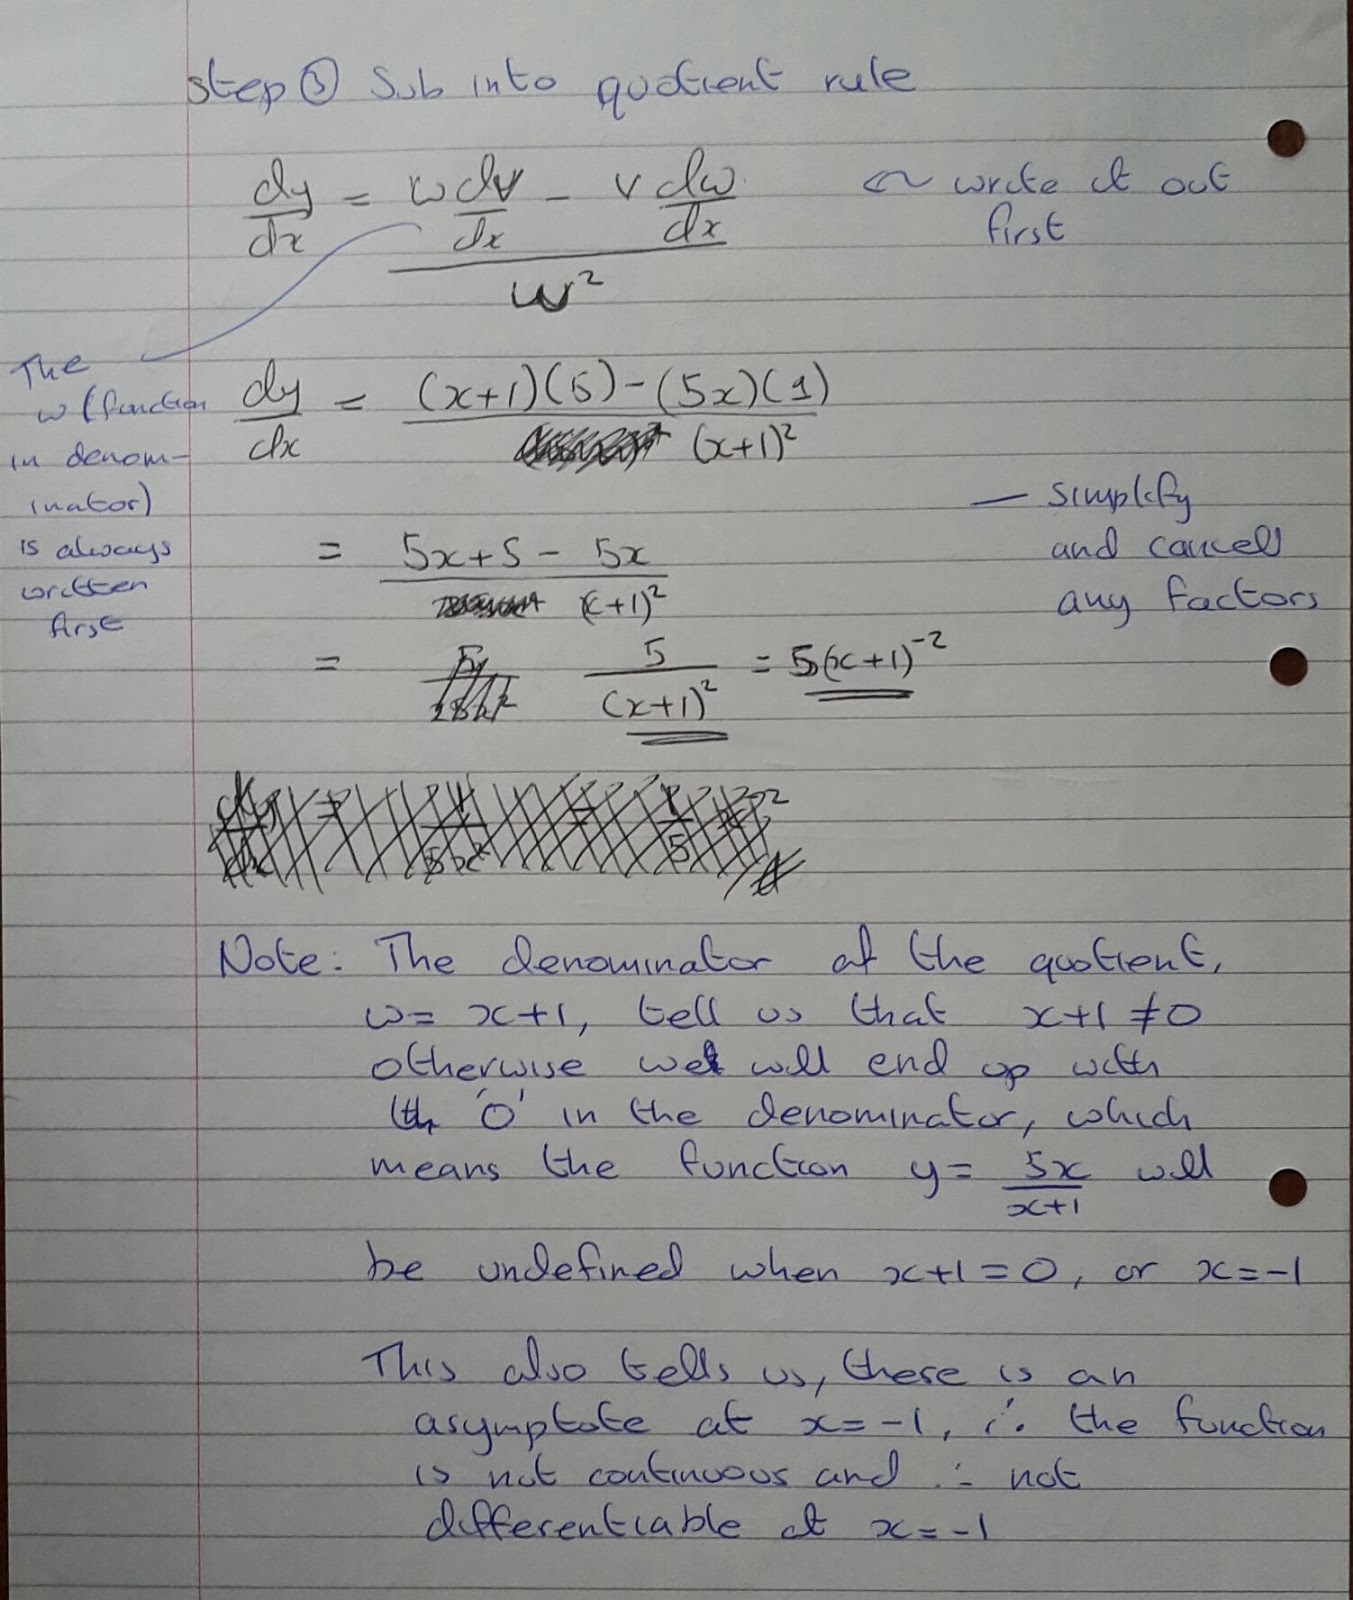 step ③ Sub into quotient rule
dy/dx = w dv/dx - v dw/dx
w²
~ write it out
first
The
w (function
in denom-
inator)
is always
written
first
dy/dx = (x+1)(5)-(5x)(1)
(x+1)²
= 5x+5 - 5x
(x+1)²
= 5/(x+1)² = 5(x+1)⁻²
— simplify
and cancel
any factors
Note: The denominator of the quotient,
w= x+1, tell us that x+1≠0
otherwise we will end up with
'0' in the denominator, which
means the function y= 5x/x+1 will
be undefined when x+1=0, or x=-1
This also tells us, there is an
asymptote at x=-1, ∴ the function
is not continuous and ∴ not
differentiable at x=-1